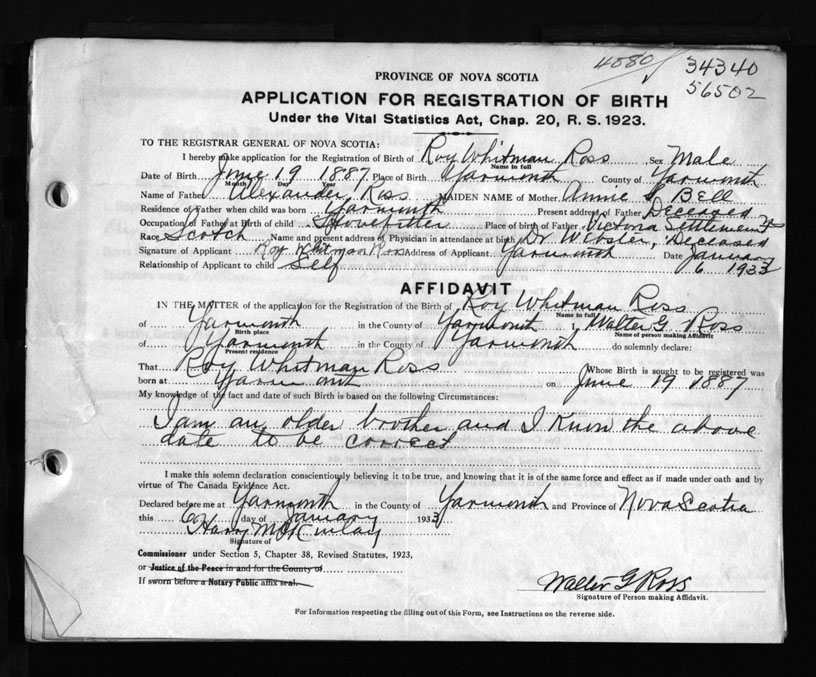 4080
34340
56502
PROVINCE OF NOVA SCOTIA
APPLICATION FOR REGISTRATION OF BIRTH
Under the Vital Statistics Act, Chap. 20, R. S. 1923.
TO THE REGISTRAR GENERAL OF NOVA SCOTIA:
I hereby make application for the Registration of Birth of Roy Whitman Ross Sex Male
Name in full
Date of Birth June 19 1887 Place of Birth Yarmouth County of Yarmouth
Month Day Year
Name of Father Alexander Ross MAIDEN NAME of Mother Annie Bell
Residence of Father when child was born Yarmouth Present address of Father Deceased
Occupation of Father at Birth of child Stovefitter Place of birth of Father Victoria Settlement
Race Scotch Name and present address of Physician in attendance at birth Dr Webster, Deceased
Signature of Applicant Roy Whitman Ross Address of Applicant Yarmouth Date January
Relationship of Applicant to child Self 6 1933
AFFIDAVIT
IN THE MATTER of the application for the Registration of the Birth of Roy Whitman Ross
Name in full
of Yarmouth in the County of Yarmouth I, Walter G. Ross
Birth place Name of person making Affidavit
of Yarmouth in the County of Yarmouth do solemnly declare:
Present residence
That Roy Whitman Ross Whose Birth is sought to be registered was
born at Yarmouth on June 19 1887
My knowledge of the fact and date of such Birth is based on the following Circumstances:
I am an older brother and I know the above
date to be correct
I make this solemn declaration conscientiously believing it to be true, and knowing that it is of the same force and effect as if made under oath and by
virtue of The Canada Evidence Act.
Declared before me at Yarmouth in the County of Yarmouth and Province of Nova Scotia
this 6 day of January 1933
Harry McKinlay
Signature of
Commissioner under Section 5, Chapter 38, Revised Statutes, 1923,
or Justice of the Peace in and for the County of
If sworn before a Notary Public affix seal.
Walter G Ross
Signature of Person making Affidavit.
For Information respecting the filling out of this Form, see Instructions on the reverse side.